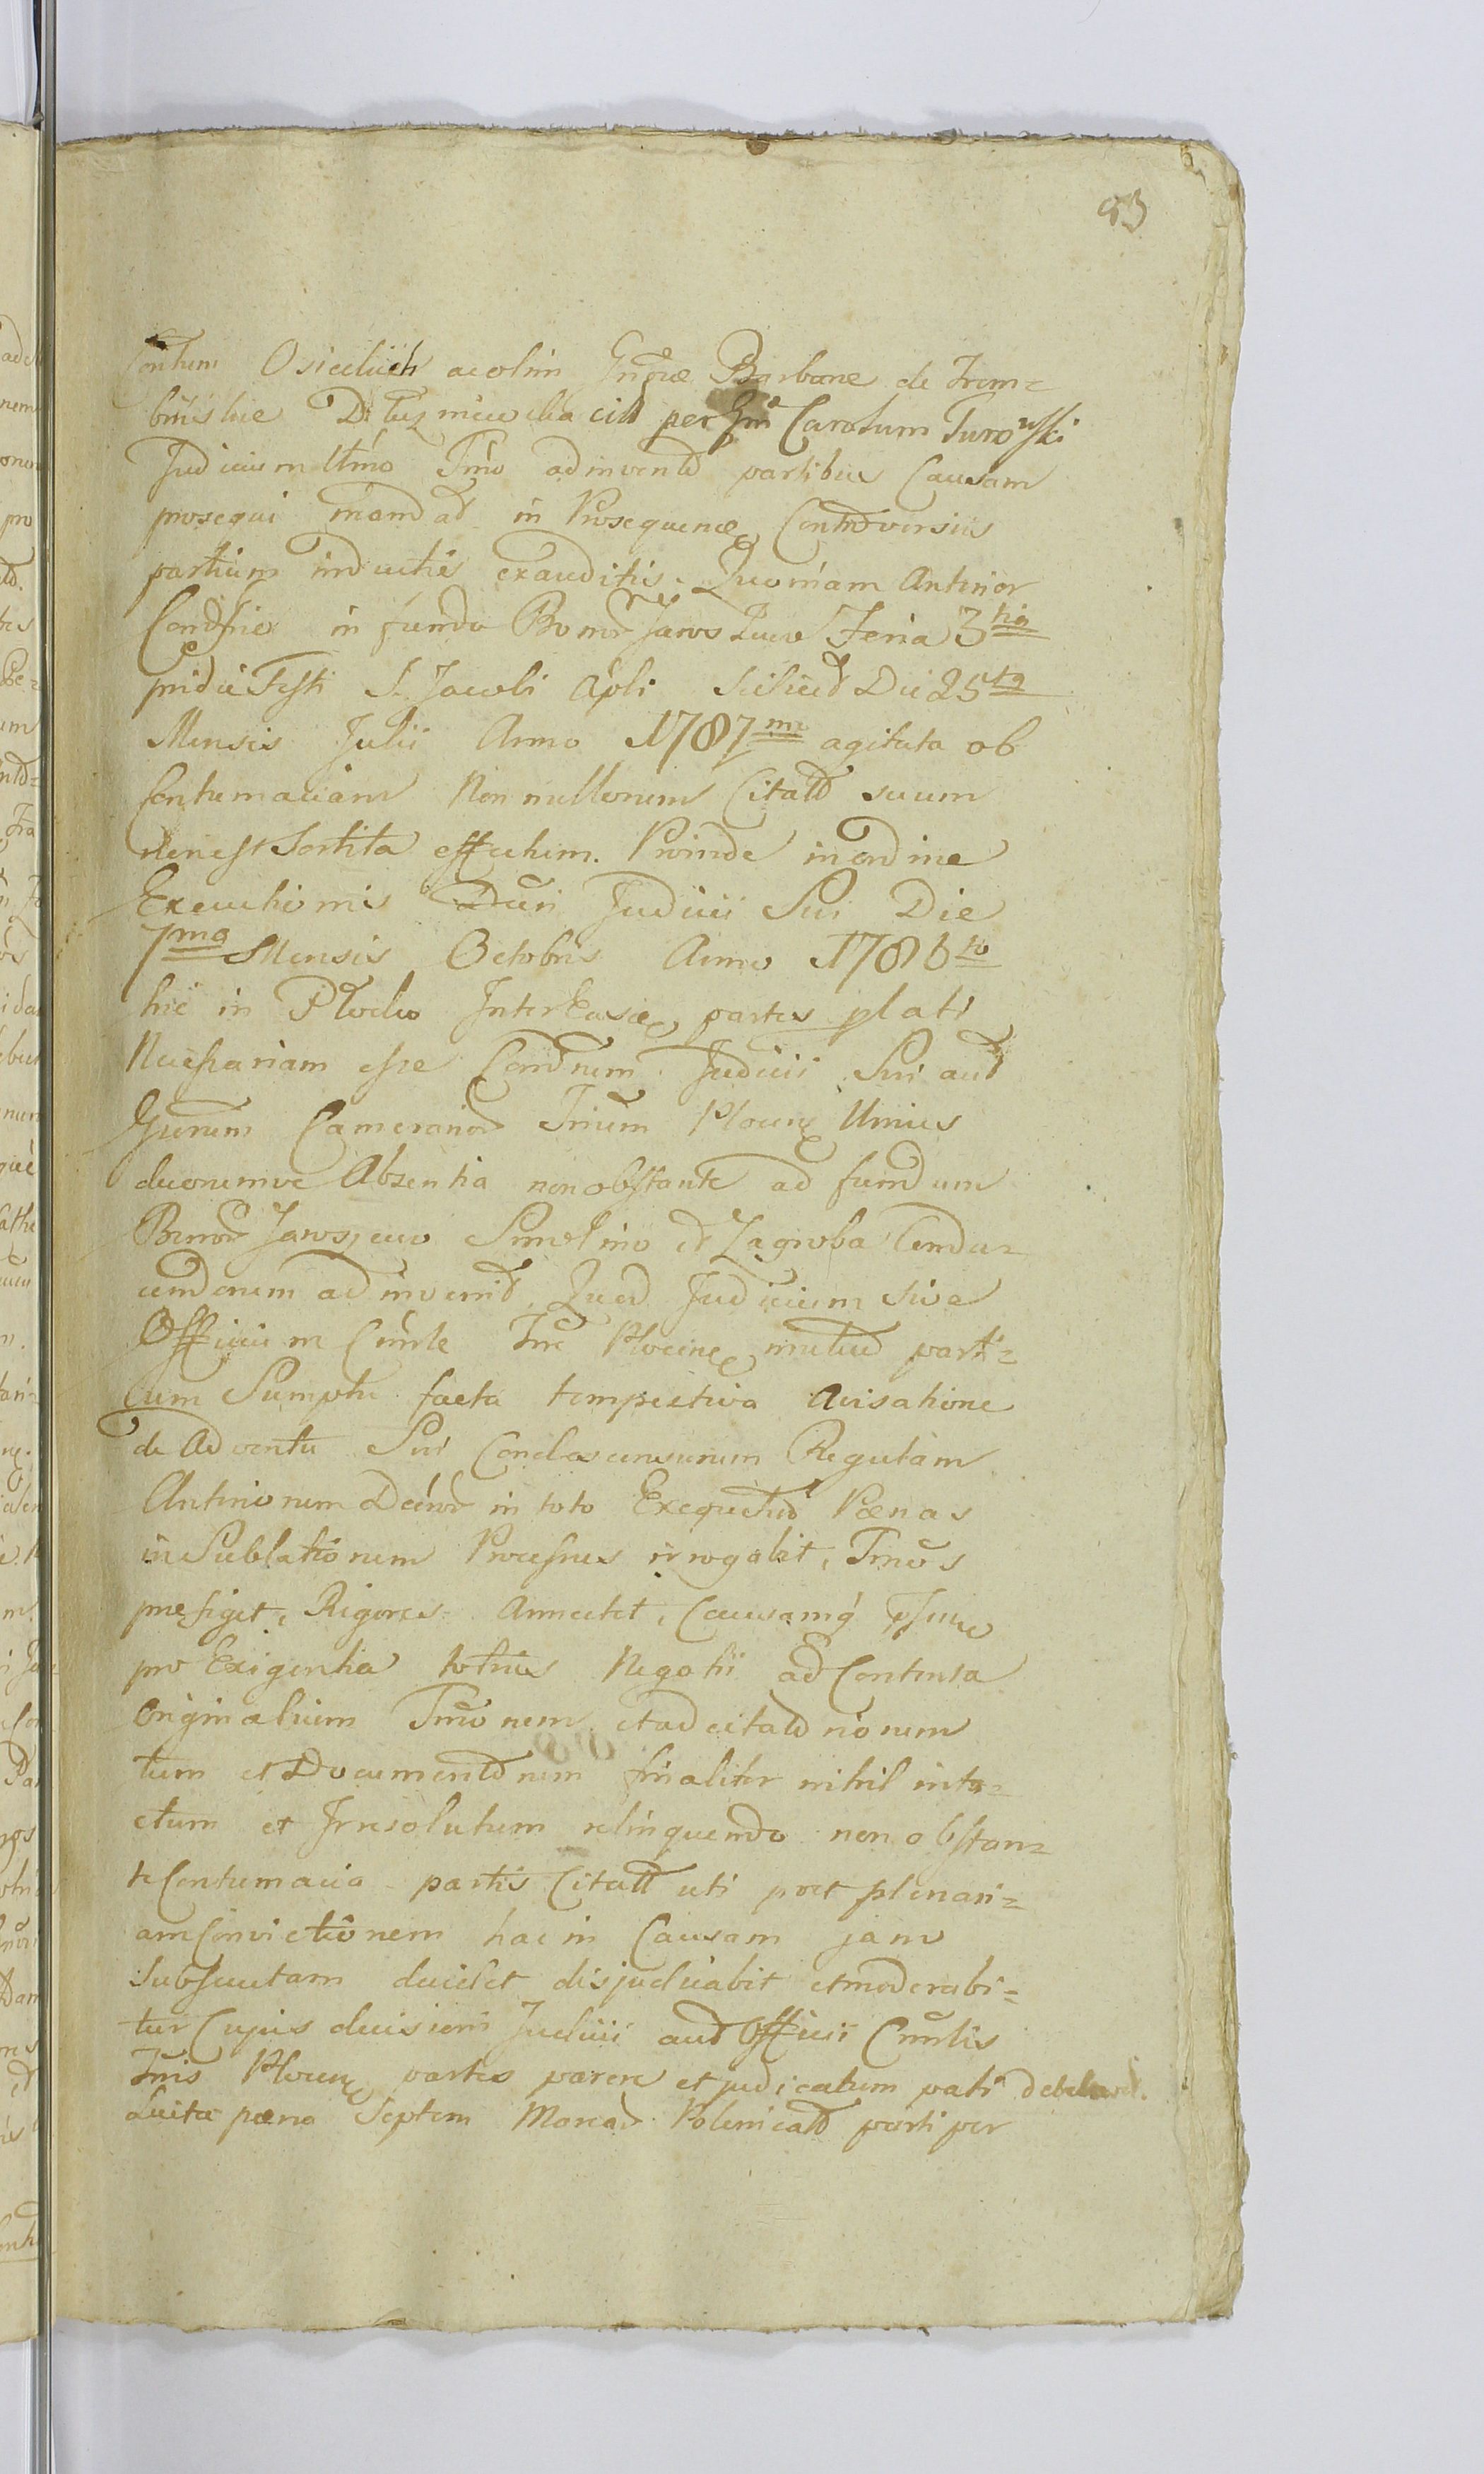 93
Contum Osieckich ac olim Gnosae Barbarae de Trem=
binskie Dłuzniewska citt per Gm Carolum Turowski
Judicium Utmo Tmo adinventd partibus Causam
prosequi mandat in Prosequence Controversiis
partium inductis exauditis. Quoniam Anterior
Condscio in fundo Bonor Jaroszewo Feria 3tia
pridie Festi S. Jacobi Apli scilicet Die 25ta
Mensis Julii Anno 1787mo agitata ob
Contumaciam Nonnullorum Citatd suum
non est Sortita effectum. Proinde in ordine
Executionis Dcti Judicii Sui Die
7ma Mensis Octobris Anno 1786to
hic in Plocko Inter Easdem partes plati
Necessariam esse Condnem Judicii Sui aut
Gnrum Camerarior Trium Plocen Unius
duorumve Absentia non obstante ad fundum
Bonor Jaroszewo Smolino et Zagroba Condu=
cendorum adinvenit. Quod Judicium sive
Officium Cmrle Tre Plocense mutuo parti=
um Sumptu facta tempestiva Avisatione
de Adventu Sui Condescensurum Regulam
Anteriorum Dctor in toto Exequetur Poenas
in Sublationem Processus irrogabit, Tmos
prefiget, Rigores Annectet, Causamq
pro Exigentia totius Negotii ad Contenta
Originalium Tmonem et ad citatd nonem
tum et Documentdnem finaliter nihil inta=
ctum et Irresolutum relinquendo non obstan=
te Contumacia partis Citatt uti post plenari=
am Convictionem hac in Causam jam
Subsecutam decidet disjudicabit et moderabi=
tur Cujus decisioni Judicii aut Officii Cmrlis
Tris Plocen partes parere et judicatum pati debebunt.
Luita poena Septem Marcar Polonicald parti per